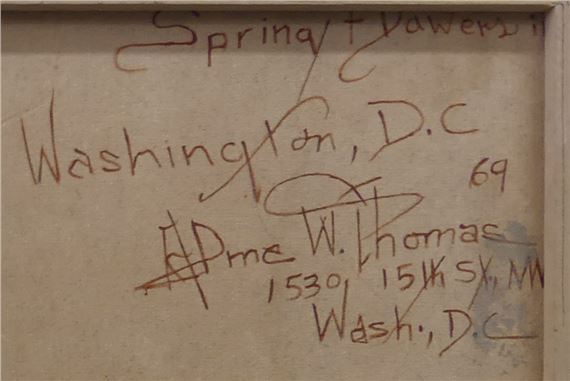 Spring + Flowers in
Washington, D.C
69
Alma W. Thomas
1530, 15th St, NW
Wash., D.C